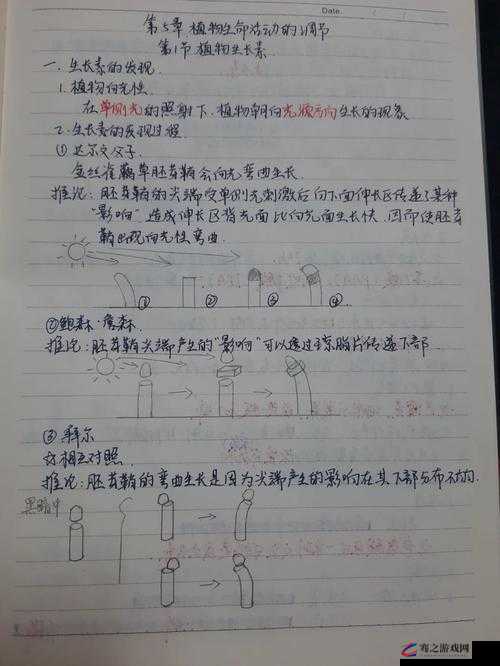 Date.
第5章 植物生命活动的调节
第1节 植物生长素
一、生长素的发现.
1. 植物向光性
在单侧光的照射下,植物朝向光源方向生长的现象
2. 生长素的发现过程
① 达尔文父子
金丝雀虉草胚芽鞘会向光弯曲生长.
推论:胚芽鞘的尖端受单侧光刺激后向下面伸长区传递了某种
"影响",造成伸长区背光面比向光面生长快,因而使胚芽
鞘出现向光性弯曲.
① ② ③ ④
②鲍森·詹森.
推论:胚芽鞘尖端产生的"影响"可以透过琼脂片传递下部.
③ 拜尔
相互对照.
推论:胚芽鞘的弯曲生长是因为尖端产生的影响在其下部分布不均.
黑暗中
骞之游戏网